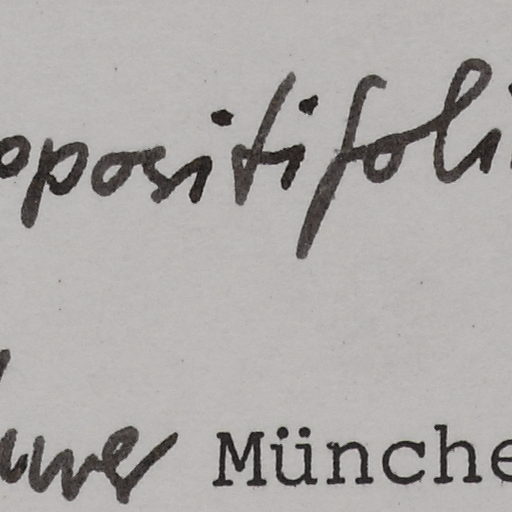 opositifoli
München